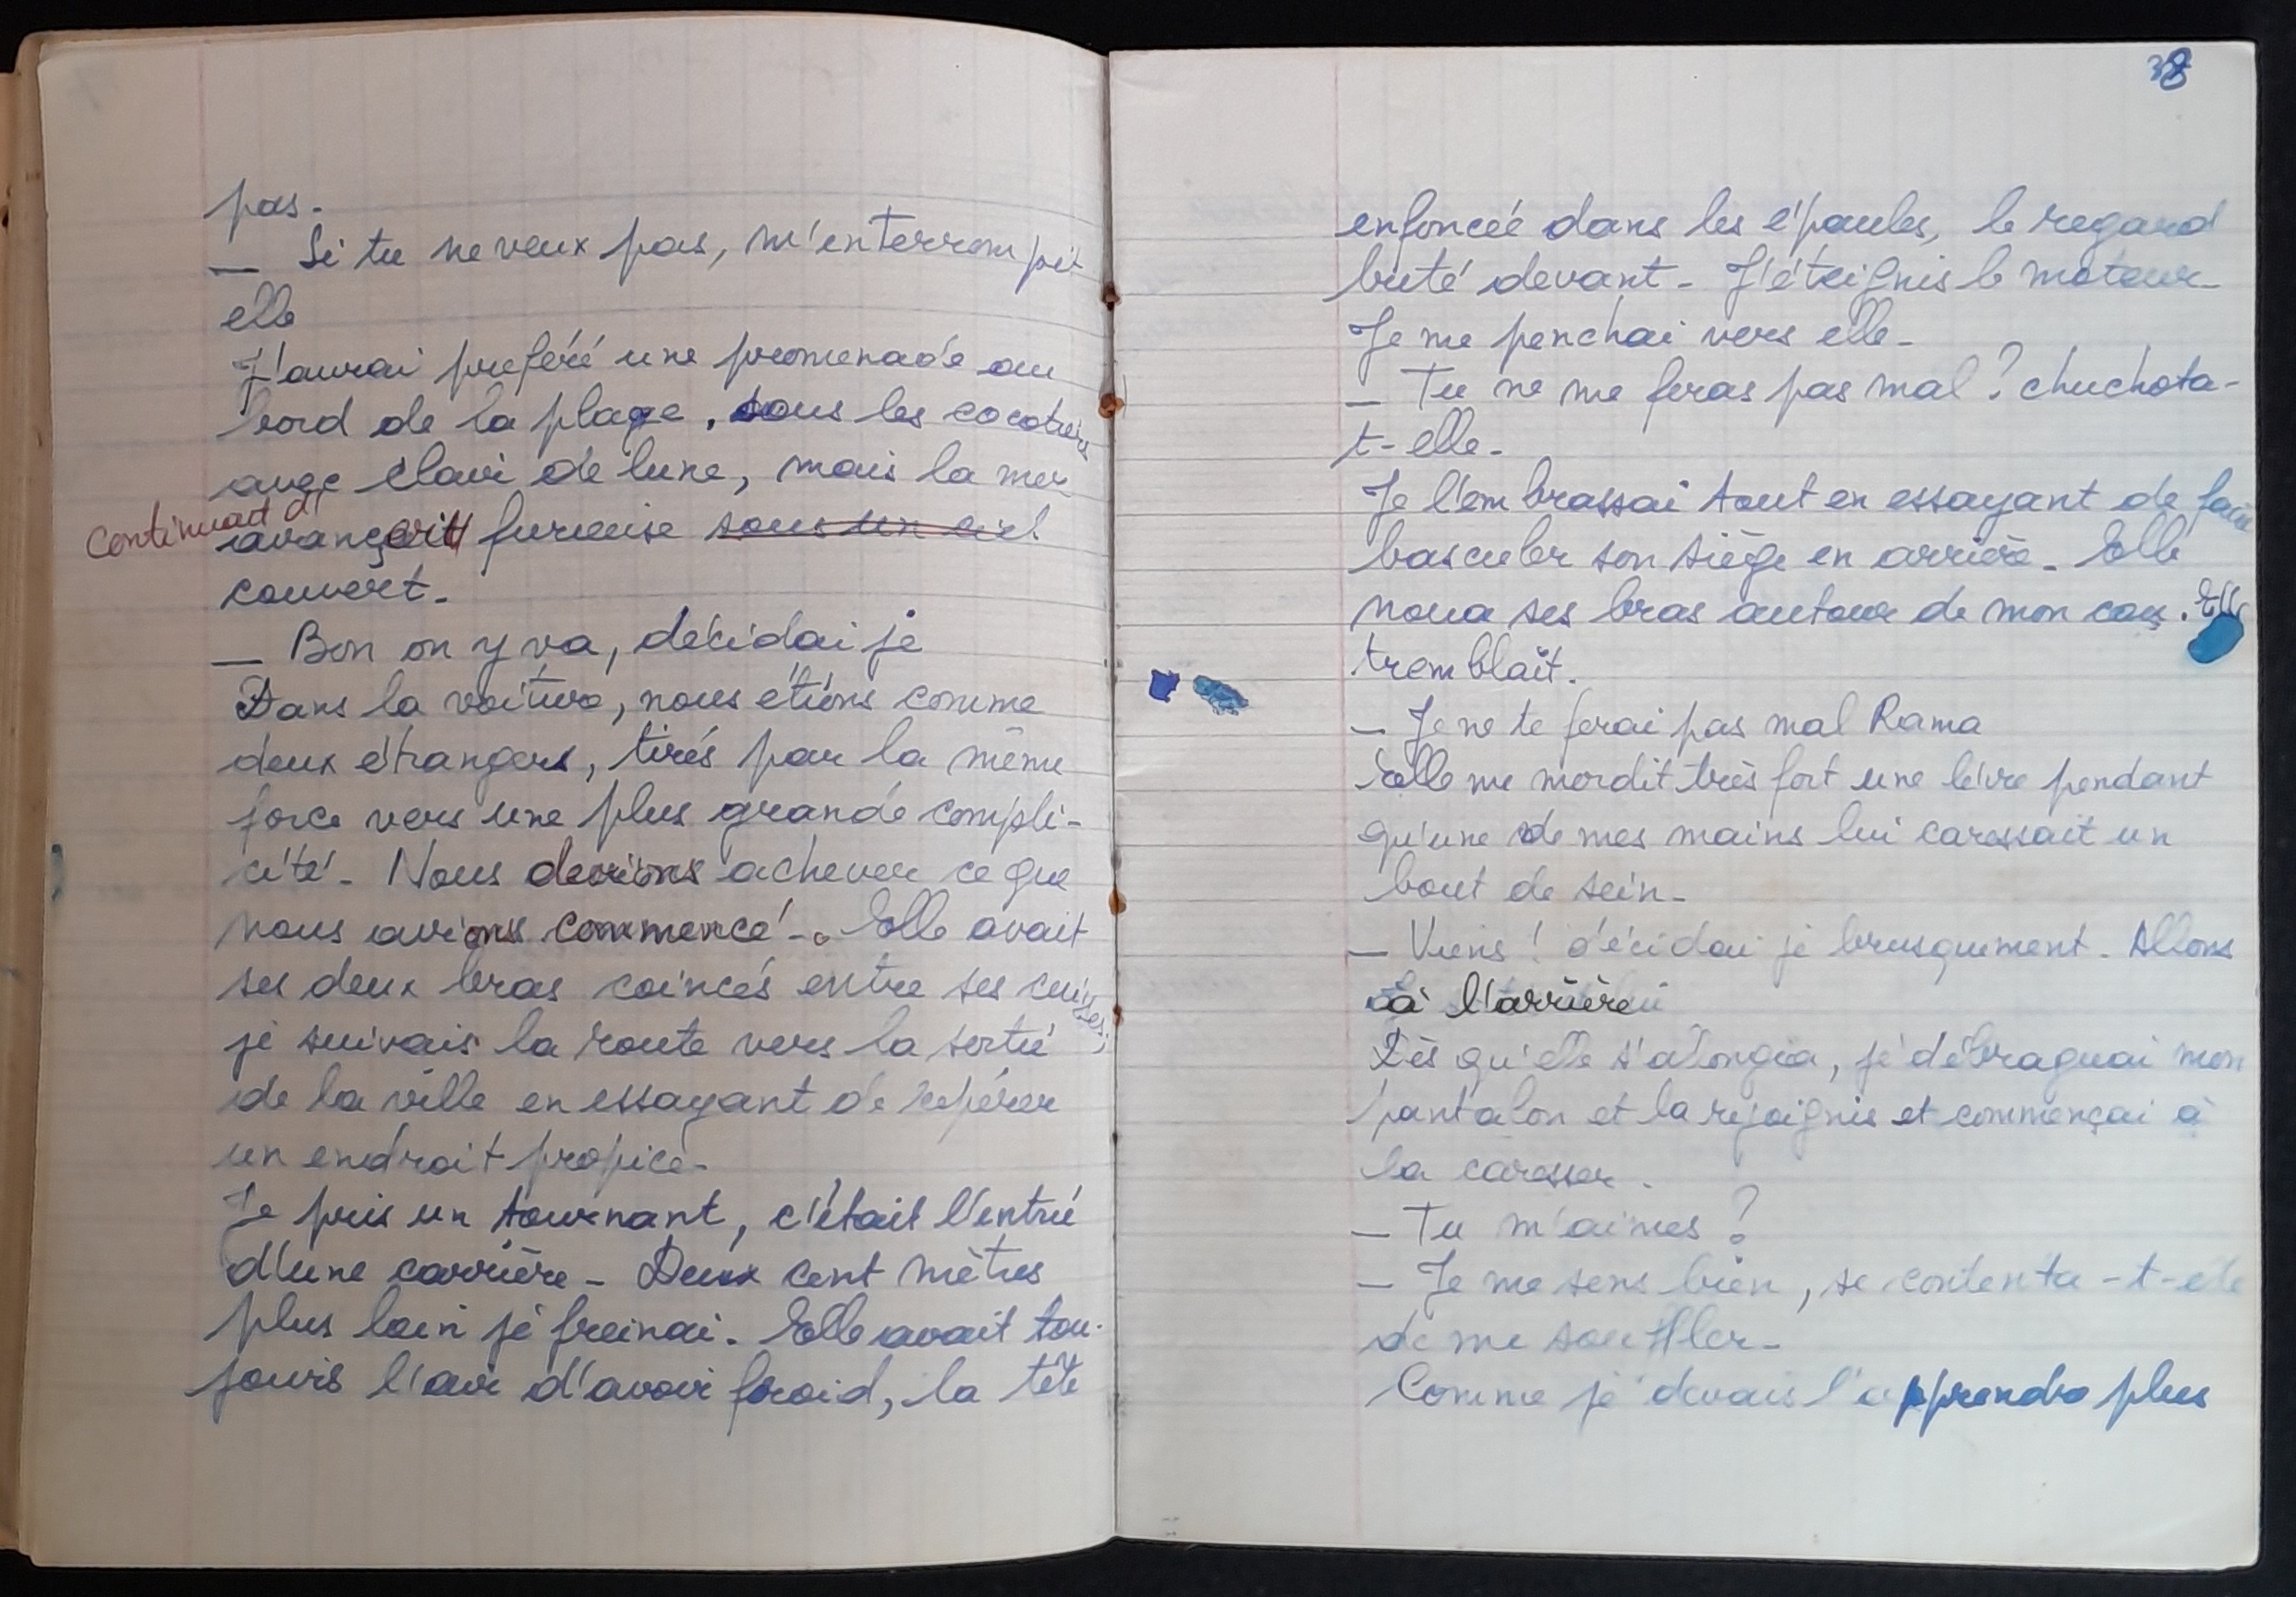 pas.
— Si tu ne veux pas, m'enterrompit
elle
J'aurai preféré une promenade au
bord de la plage, sous les cocotiers
avec clair de lune, mais la mer
continuait d'
avancer furieuse sous un ciel
couvert.
— Bon on y va, décidai je
Dans la voiture, nous étions comme
deux étrangers, tirés par la même
force vers une plus grande compli-
cité. Nous devions achever ce que
nous avions commencé. Elle avait
ses deux bras coincés entre ses cuisses;
je suivais la route vers la sortie
de la ville en essayant de repérer
un endroit propice.
Je pris un tournant, c'était l'entrée
d'une carrière - Deux cent mètres
plus loin je freinai. Elle avait tou-
jours l'air d'avoir froid, la tête
38
enfoncée dans les épaules, le regard
buté devant - J'éteignis le moteur.
Je me penchai vers elle.
— Tu ne me feras pas mal ? chuchota-
t-elle.
Je l'embrassai tout en essayant de faire
basculer son siège en arrière. Elle
noua ses bras autour de mon cou. Elle
tremblait.
— Je ne te ferai pas mal Rama
Elle me mordit très fort une lèvre pendant
qu'une de mes mains lui caressait un
bout de sein.
— Viens ! décidai je brusquement. Allons
à l'arrière
Dès qu'elle s'alongea, je débraguai mon
pantalon et la rejoignis et commençai à
la caresser.
— Tu m'aimes ?
— Je me sens bien, se contenta-t-elle
de me souffler.
Comme je devais l'apprendre plus